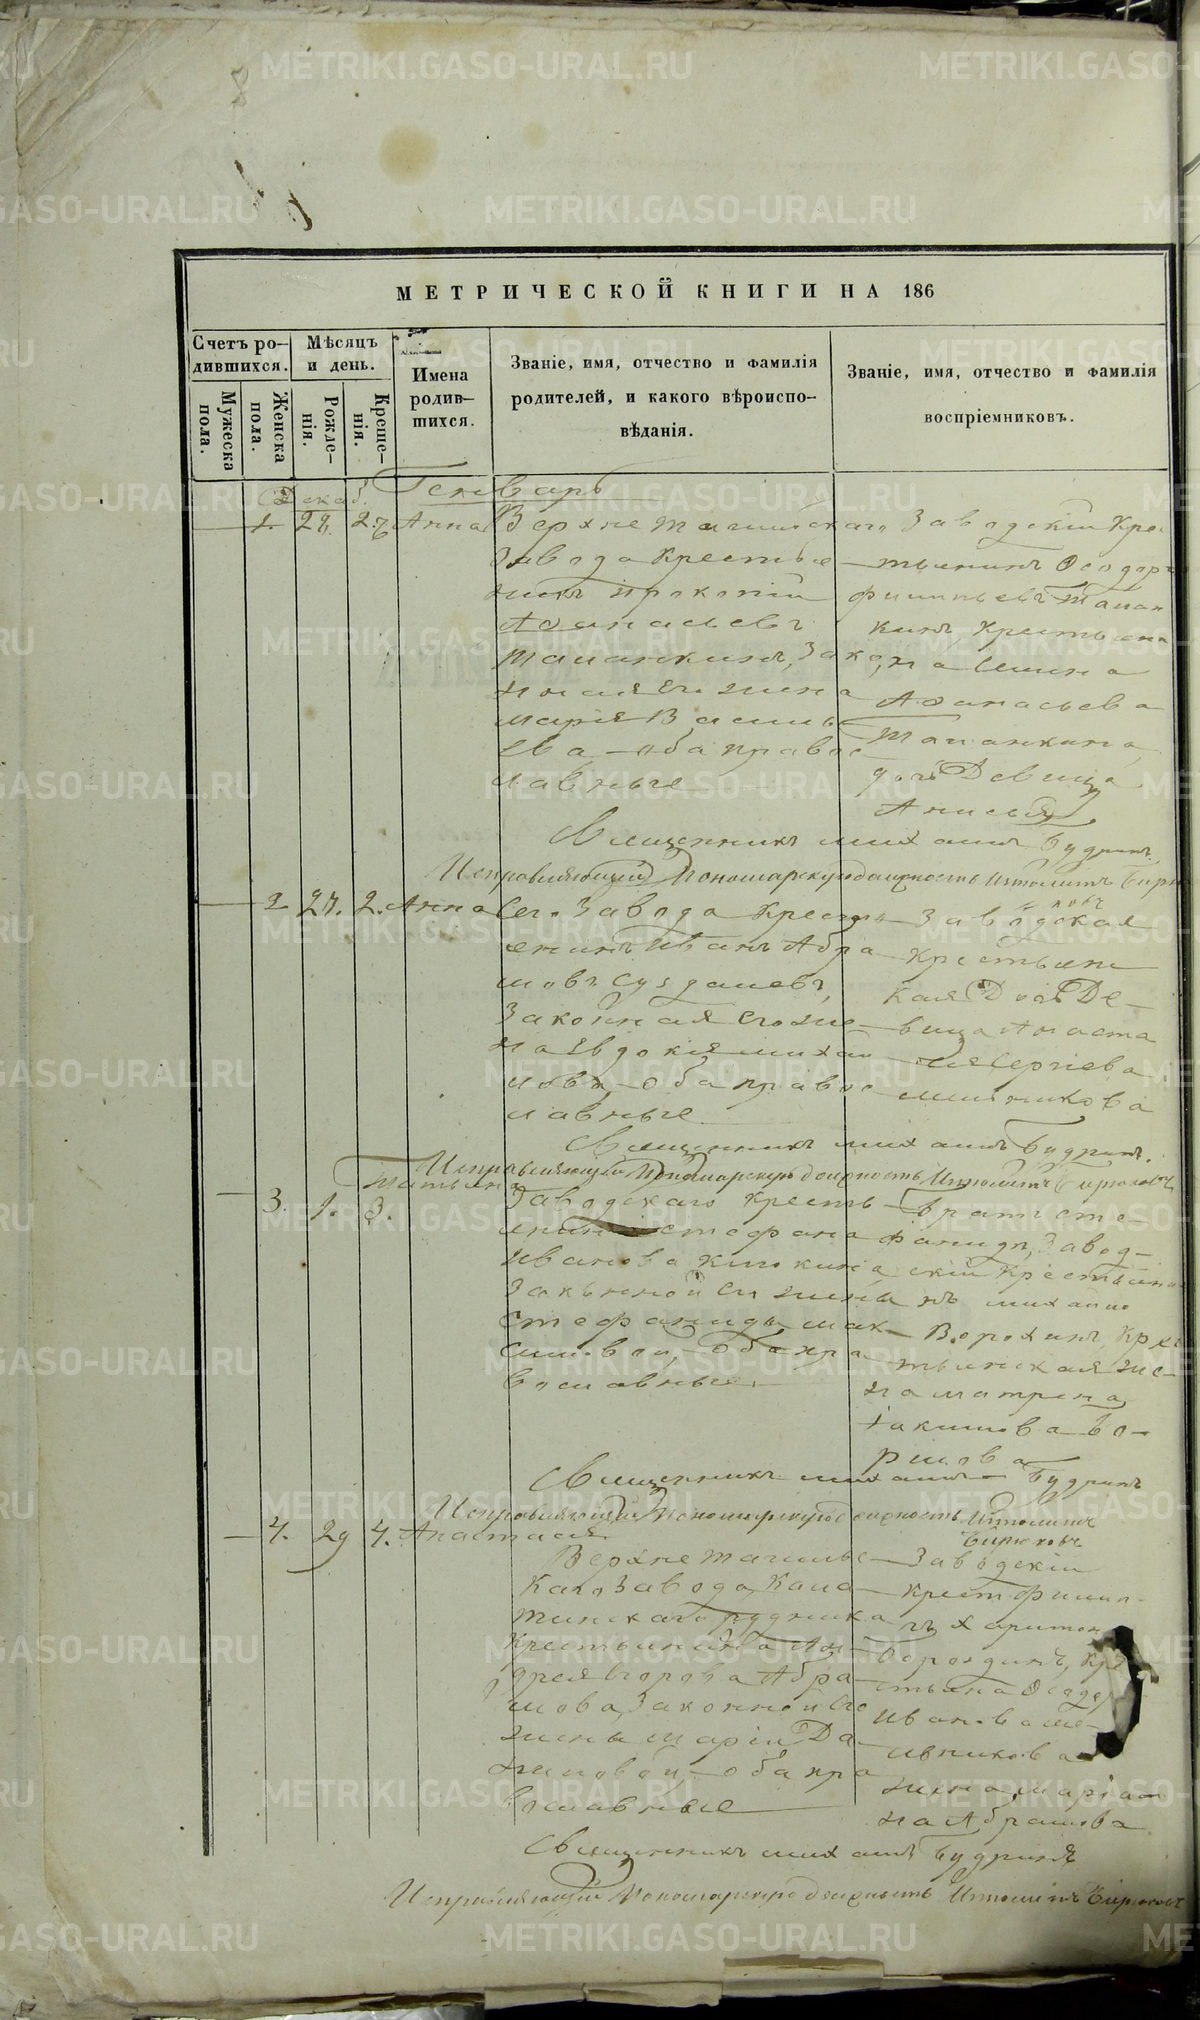 МЕТРИЧЕСКОЙ КНИГИ НА 186
Счетъ ро-
дившихся.
Мѣсяцъ
и день.
Имена
родив-
шихся.
Званіе, имя, отчество и фамилія
родителей, и какого вѣроиспо-
вѣданія.
Званіе, имя, отчество и фамилія
воспріемниковъ.
Мужеска
пола.
Женска
пола.
Рожде-
нія.
Креще-
нія.
Декаб.
Генварь
1. 29. 2. Анна
Верхнетагильскаго
Завода Крестья-
нинъ Прокопій
Афанасьевъ
Таланкинъ, Зако-
нная его жена
Марія Василь-
ева оба правос-
лавные
Заводскій Кре-
стьянинъ Ѳеодоръ
Филипьевъ Талан
кинъ, Крестьяни
на Семена
Афанасьева
Таланкина,
дочь Девица
Анисья
Священникъ Михаилъ Будринъ.
Исправляющій Пономарскую должность Ипполитъ Бирю-
ковъ
2. 27. 2. Анна
Сего Завода Кресть-
янинъ Иванъ Абра-
мовъ Суздалевъ,
Законная его же-
на Евдокія Михай-
лова, оба правос-
лавные
Заводская
крестьянс
кая Дочь Де-
вица Анаста
сія Сергіева
Мельникова
Священникъ Михаилъ Будринъ.
Исправляющій Пономарскую должность Ипполитъ Бирюковъ
3. 1. 3. Татьяна
Заводскаго кресть-
янина Стефана
Иванова Кюкина
Законной его жены
Стефаниды Мак-
симовой, оба пра
вославные.
Братъ Сте-
фаниды, Завод-
скій Крестьяни-
нъ Михайло
Ворохинъ, Кре
стьянская же-
на Матрена
Іакимова Бо-
рисова
Священникъ Михаилъ Будринъ
Исправляющій Пономарскую должность Ипполитъ
Бирюковъ
4. 29 4. Анастасія
Верхнетагильс-
каго Завода, Кала-
тинскаго рудника
Крестьянина Ан-
дрея Егорова Абра-
мова, Законной его
жены Маріи Да-
ниловой, оба пра
вославные
Заводскій
крест. Филип-
пъ Харитон
Бороздинъ, Кре
стьяна Ѳеодор
Иванова Ме-
льникова
жена Маріа-
на Абрамова
Священникъ Михаилъ Будринъ
Исправляющій Пономарскую должность Ипполитъ Бирюковъ
METRIKI.GASO-URAL.RU